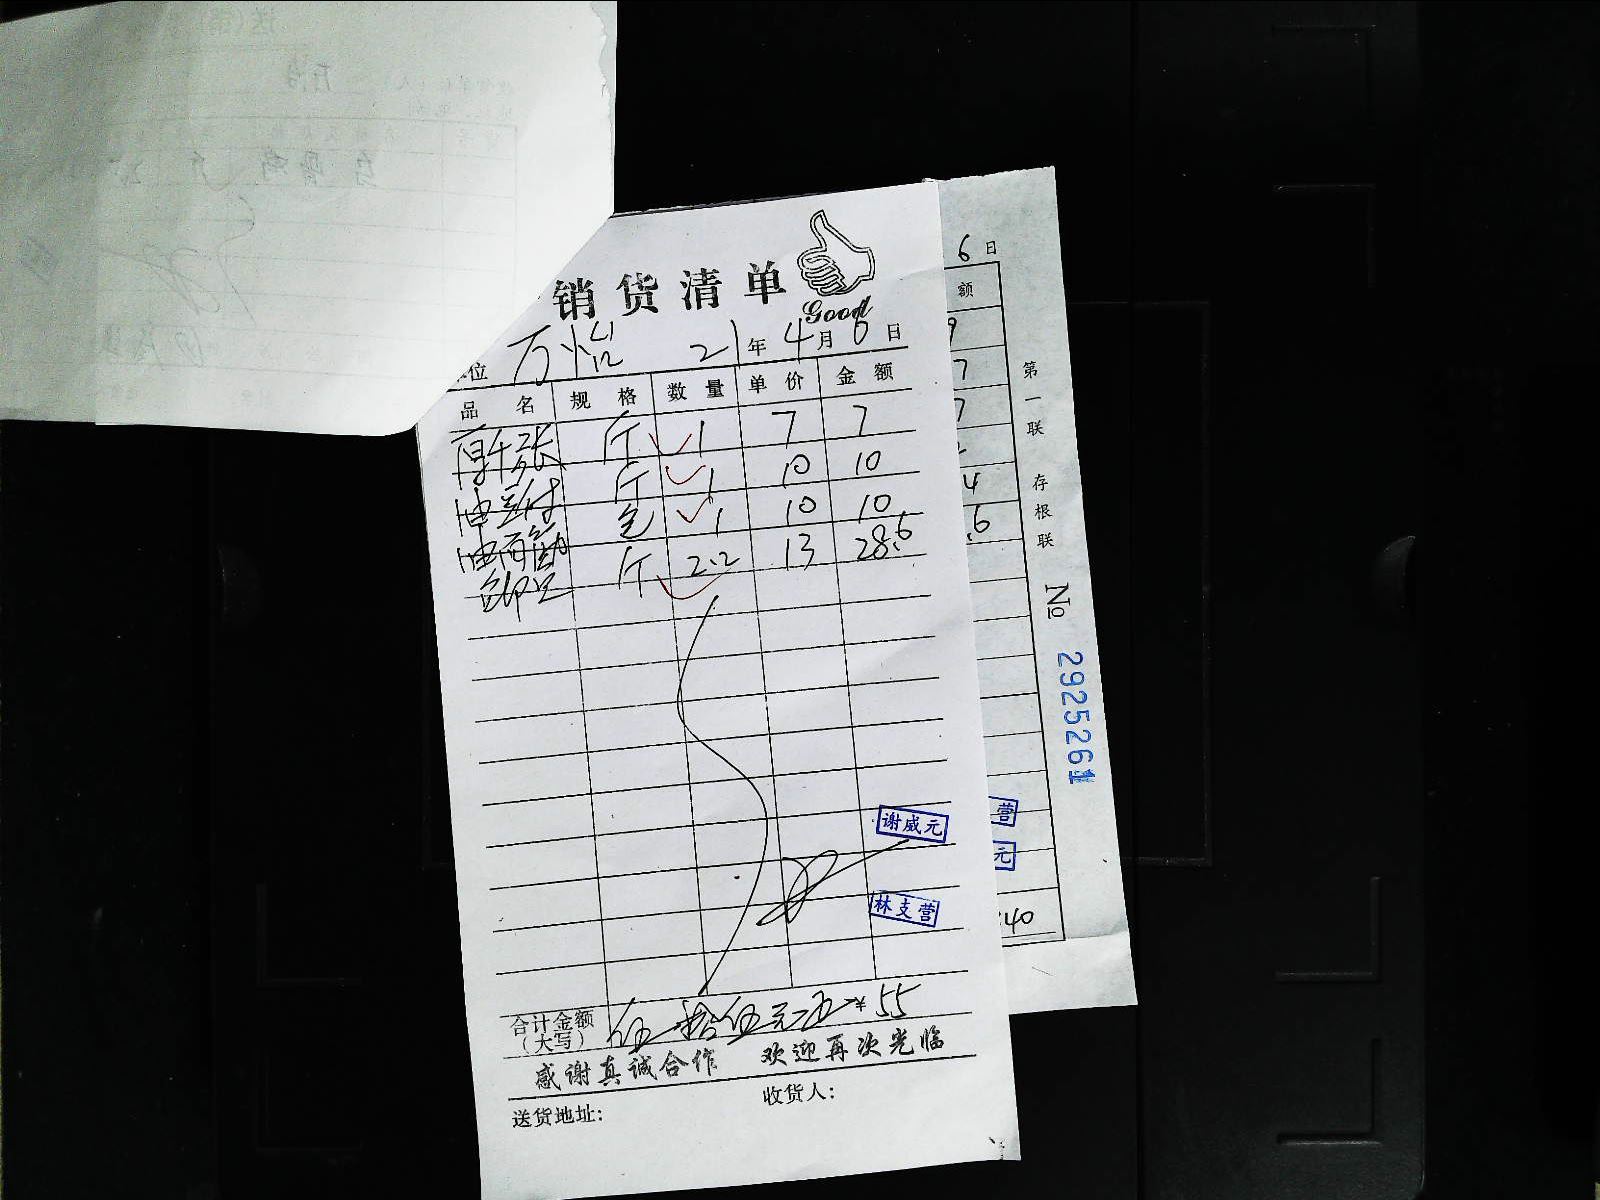 销货清单
Good
位 万怡 21年4月6日
品名 规格 数量 单价 金额
厚千张 斤 1 7 7
油豆付 斤 1 10 10
油面筋 包 1 10 10
斤 2.2 13 28.6
谢威元
林支营
合计金额(大写) 伍拾伍元 ¥55
感谢真诚合作 欢迎再次光临
送货地址: 收货人:
6日
额
9
7
7
4
.6
营
元
40
第一联 存根联
No 2925261